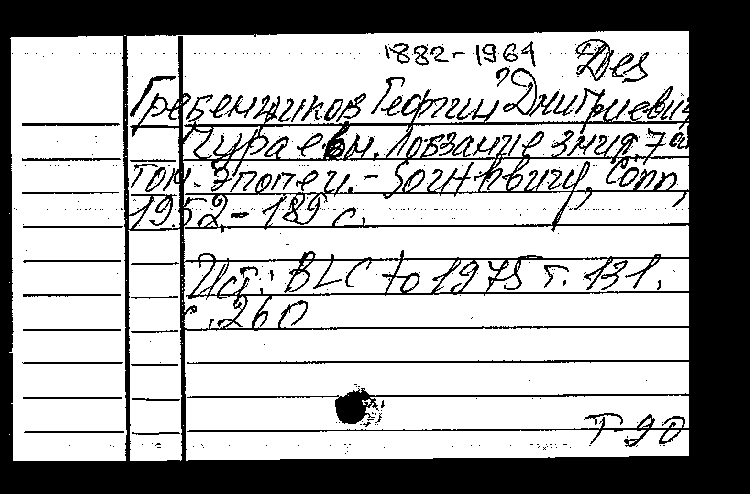 1882-1964 Дез
Гребенщиков Георгий Дмитриевич
Чураевы. Лобзание змия. 7й
том. Эпопеи. - Southbury, Conn,
1952. - 189 с.
Ист.: BLC to 1975 т. 131.
с. 260
Т-90